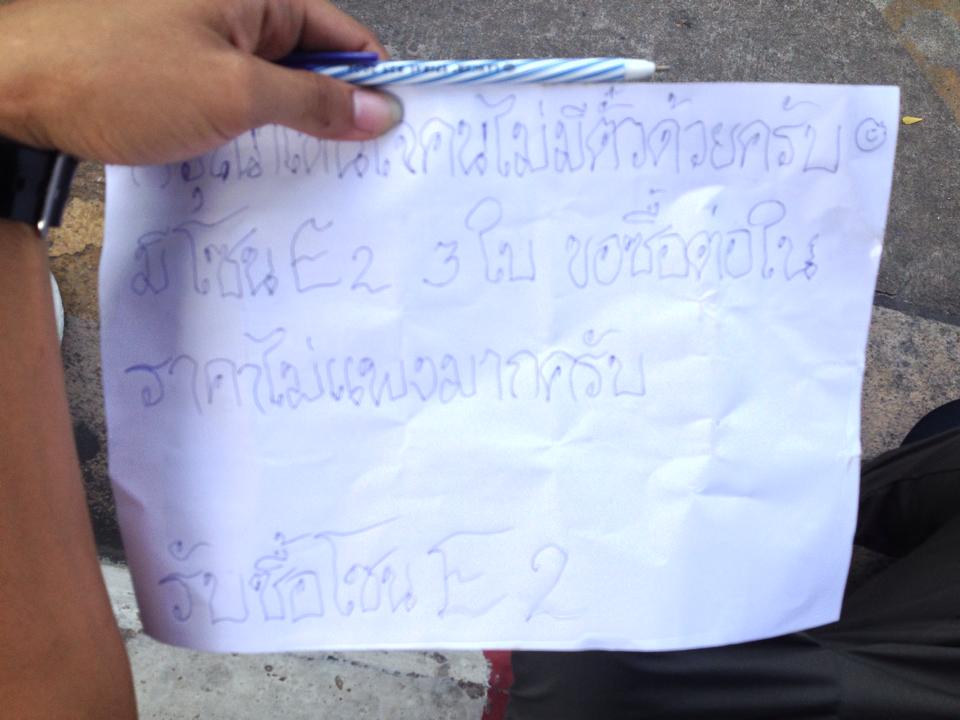 กรุณาเห็นใจคนไม่มีตั๋วด้วยครับ
มีโซน E2 3 ใบ ขอซื้อต่อใน
ราคาไม่แพงมากครับ
รับซื้อโซน E 2